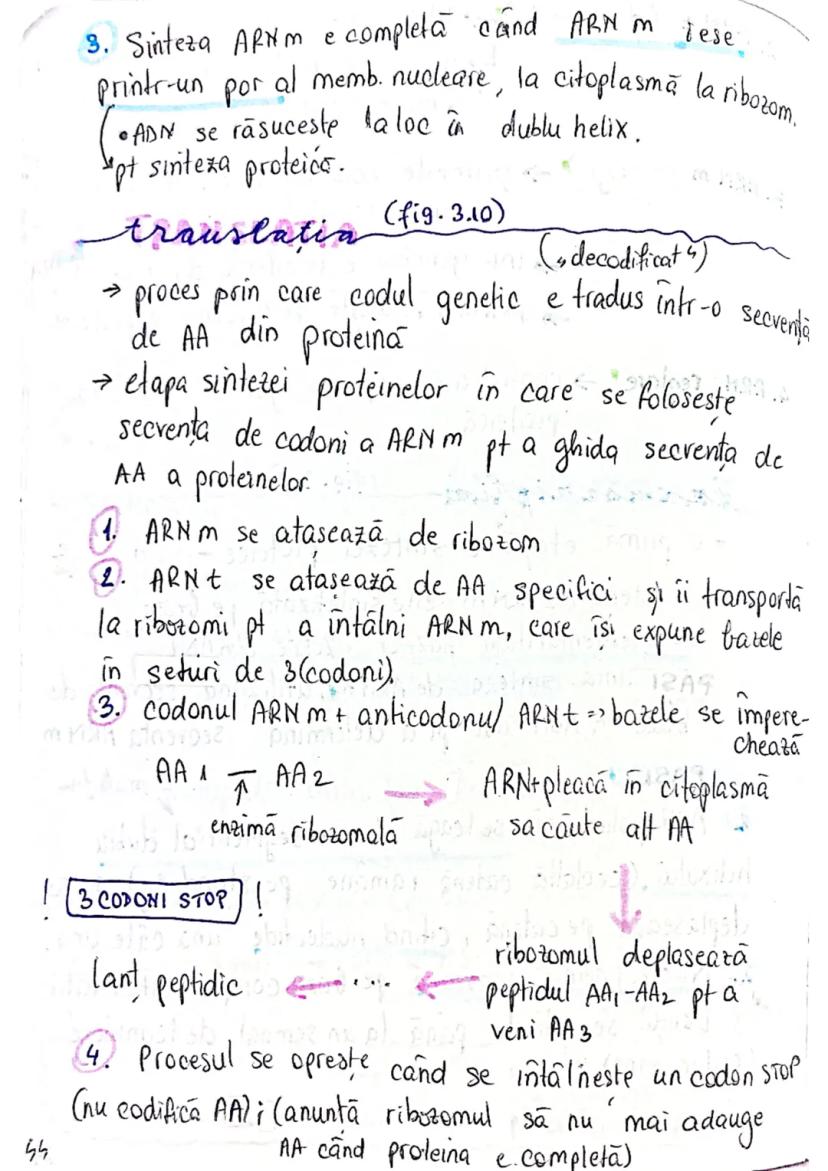 3. Sinteza ARN m e completă când ARN m iese
printr-un por al memb. nucleare, la citoplasmă la ribozom.
• ADN se răsucește la loc în dublu helix.
pt sinteza proteică.
translația (fig. 3.10)
("decodificat")
→ proces prin care codul genetic e tradus într-o secvență
de AA din proteină
→ etapa sintezei proteinelor în care se folosește
secvența de codoni a ARN m pt a ghida secvența de
AA a proteinelor.
1. ARN m se atașează de ribozom
2. ARN t se atașează de AA specifici și îi transportă
la ribozomi pt a întâlni ARN m, care își expune bazele
în seturi de 3 (codoni).
3. codonul ARN m + anticodonul ARN t => bazele se împere-
chează
AA 1 — AA 2 → ARNt pleacă în citoplasmă
↑ enzimă ribozomală să caute alt AA
! 3 CODONI STOP !
ribozomul deplasează
lanț peptidic ← ... ← peptidul AA1-AA2 pt a
veni AA3
4. Procesul se oprește când se întâlnește un codon STOP
(nu codifică AA); (anunță ribozomul să nu mai adauge
44 AA când proteina e completă)